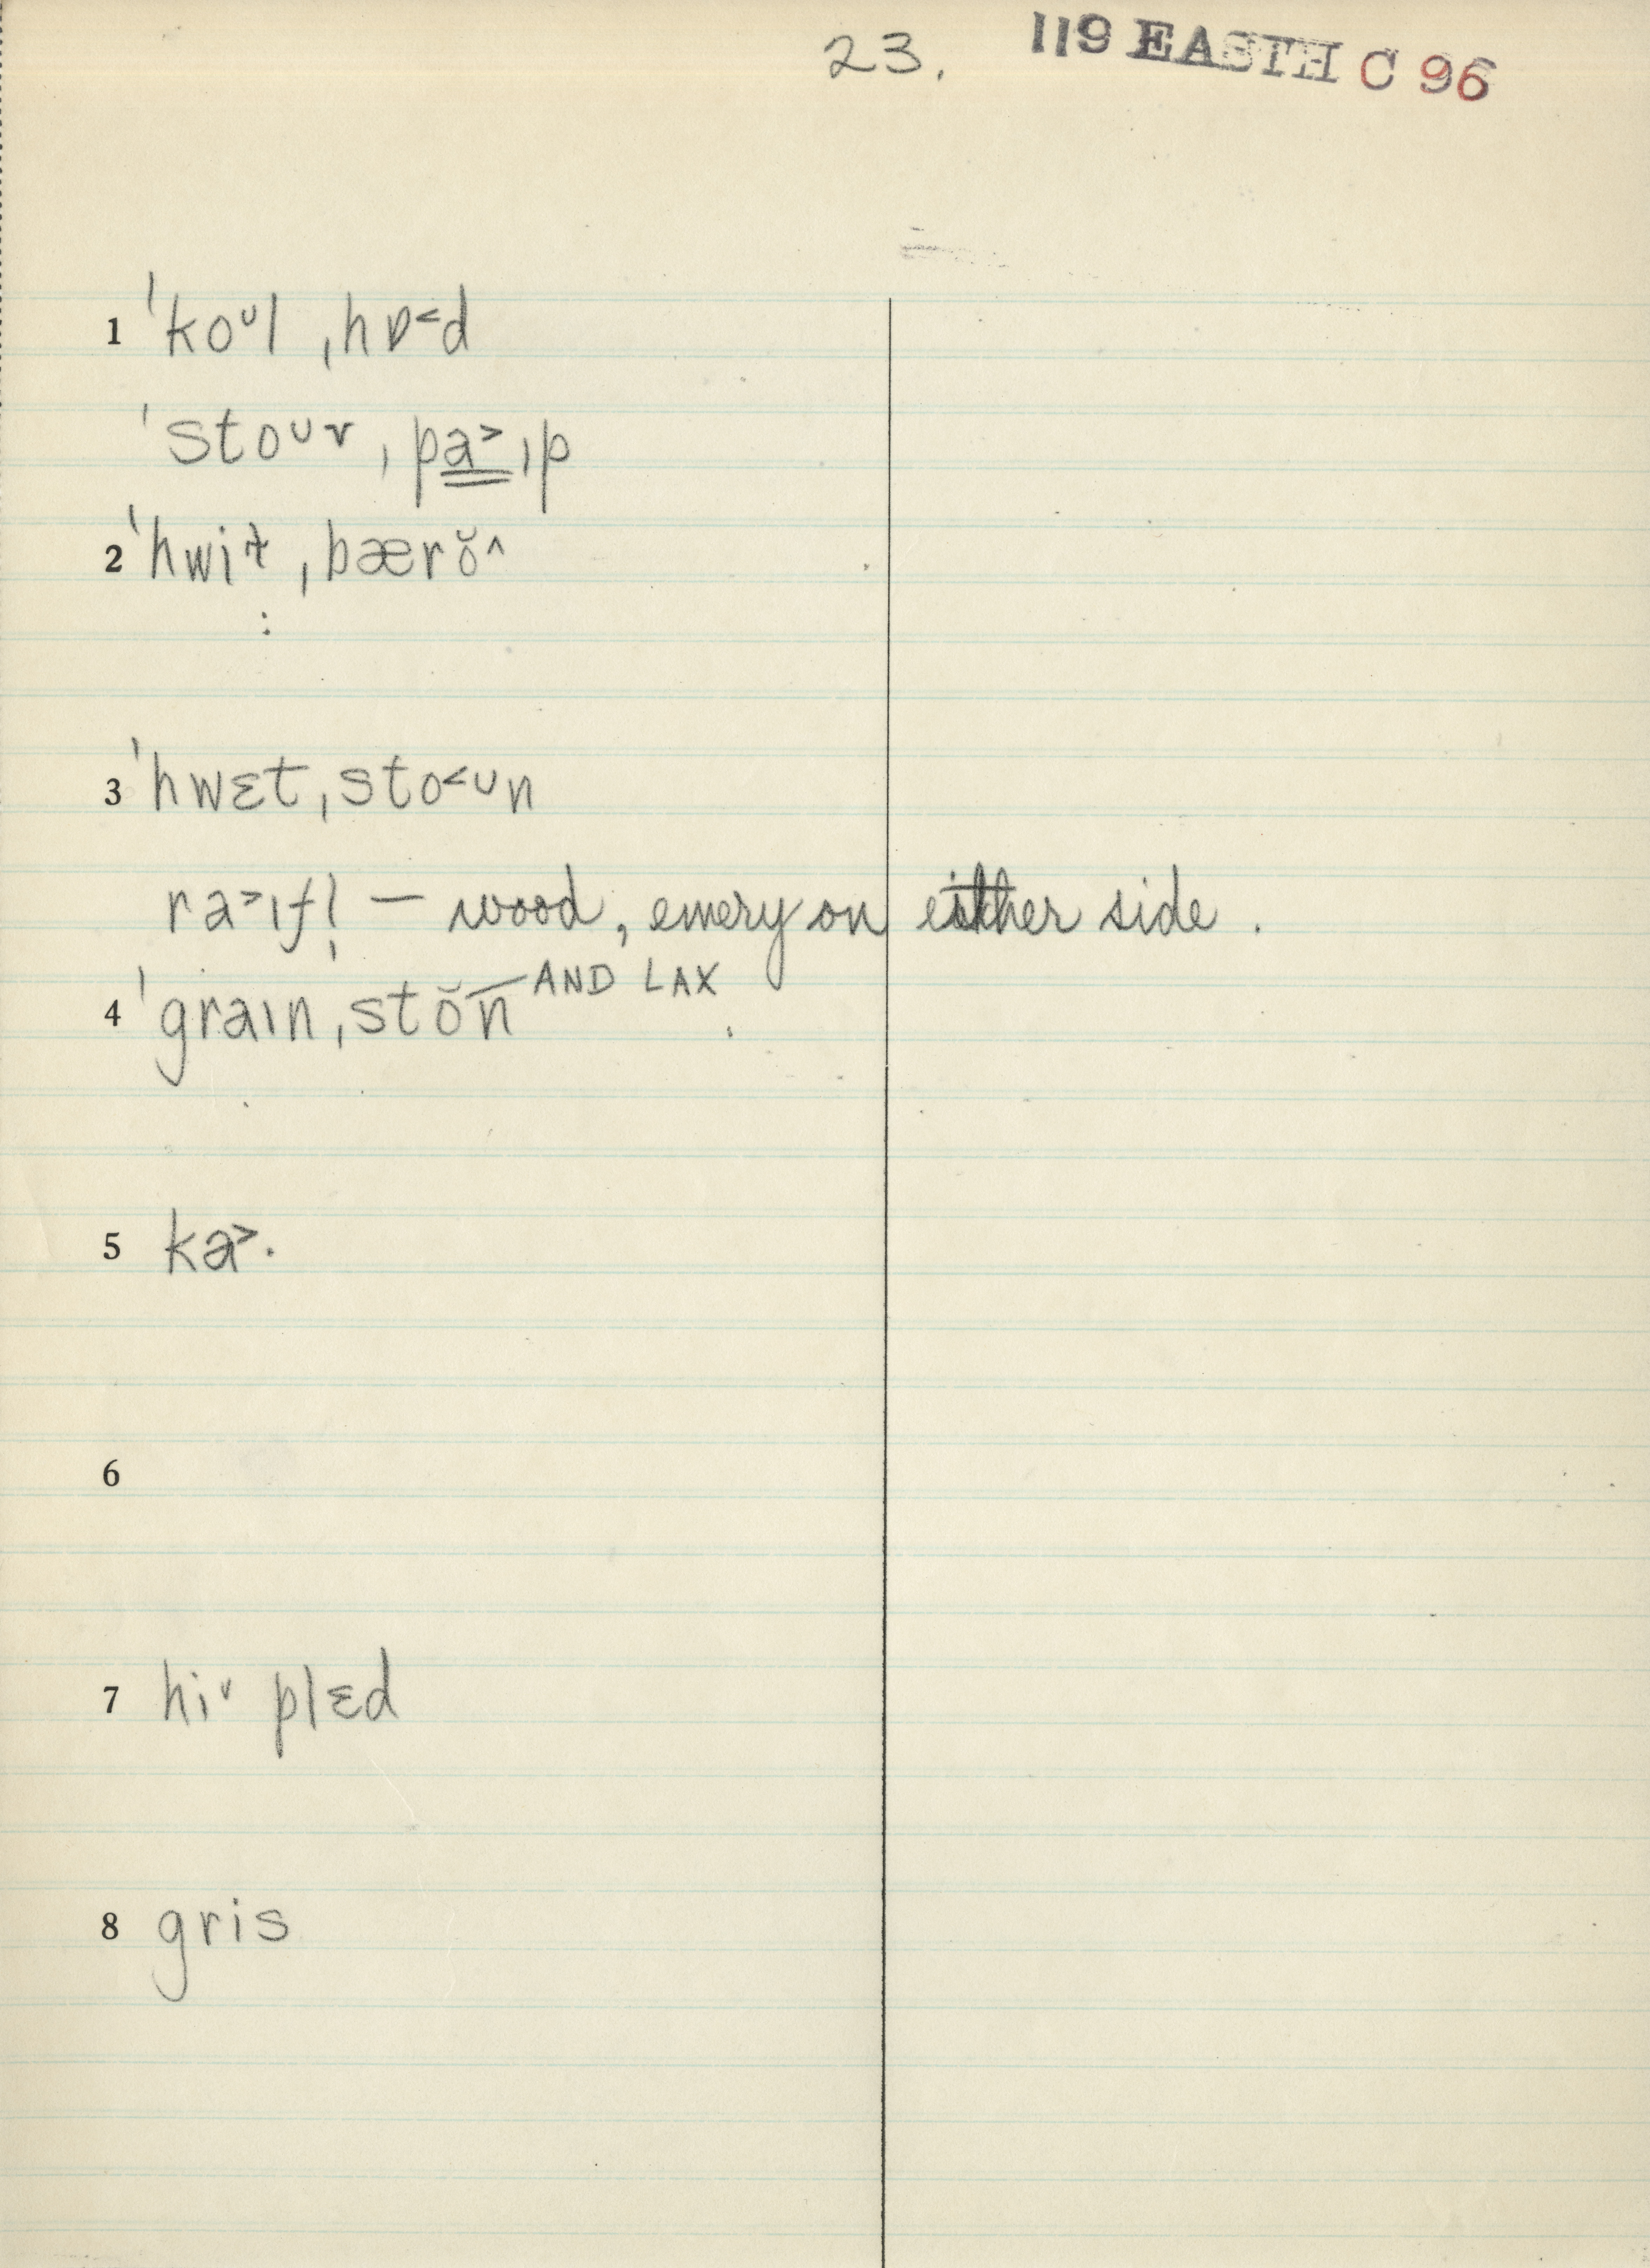 23. 119 EASTH C 96
1 ˈkoᴜl ˌhɒ˂d
ˈstoᴜɚ ˌpa˃ɪp
2 ˈhwit̬ ˌbærŏ^
:
3 ˈhwɛt ˌsto˂ᴜn
ra˃ɪfl̩ — wood, emery on either side.
4 ˈgraɪn ˌstŏn̄ AND LAX
5 ka˃·
6
7 hiˇ plɛd
8 gris